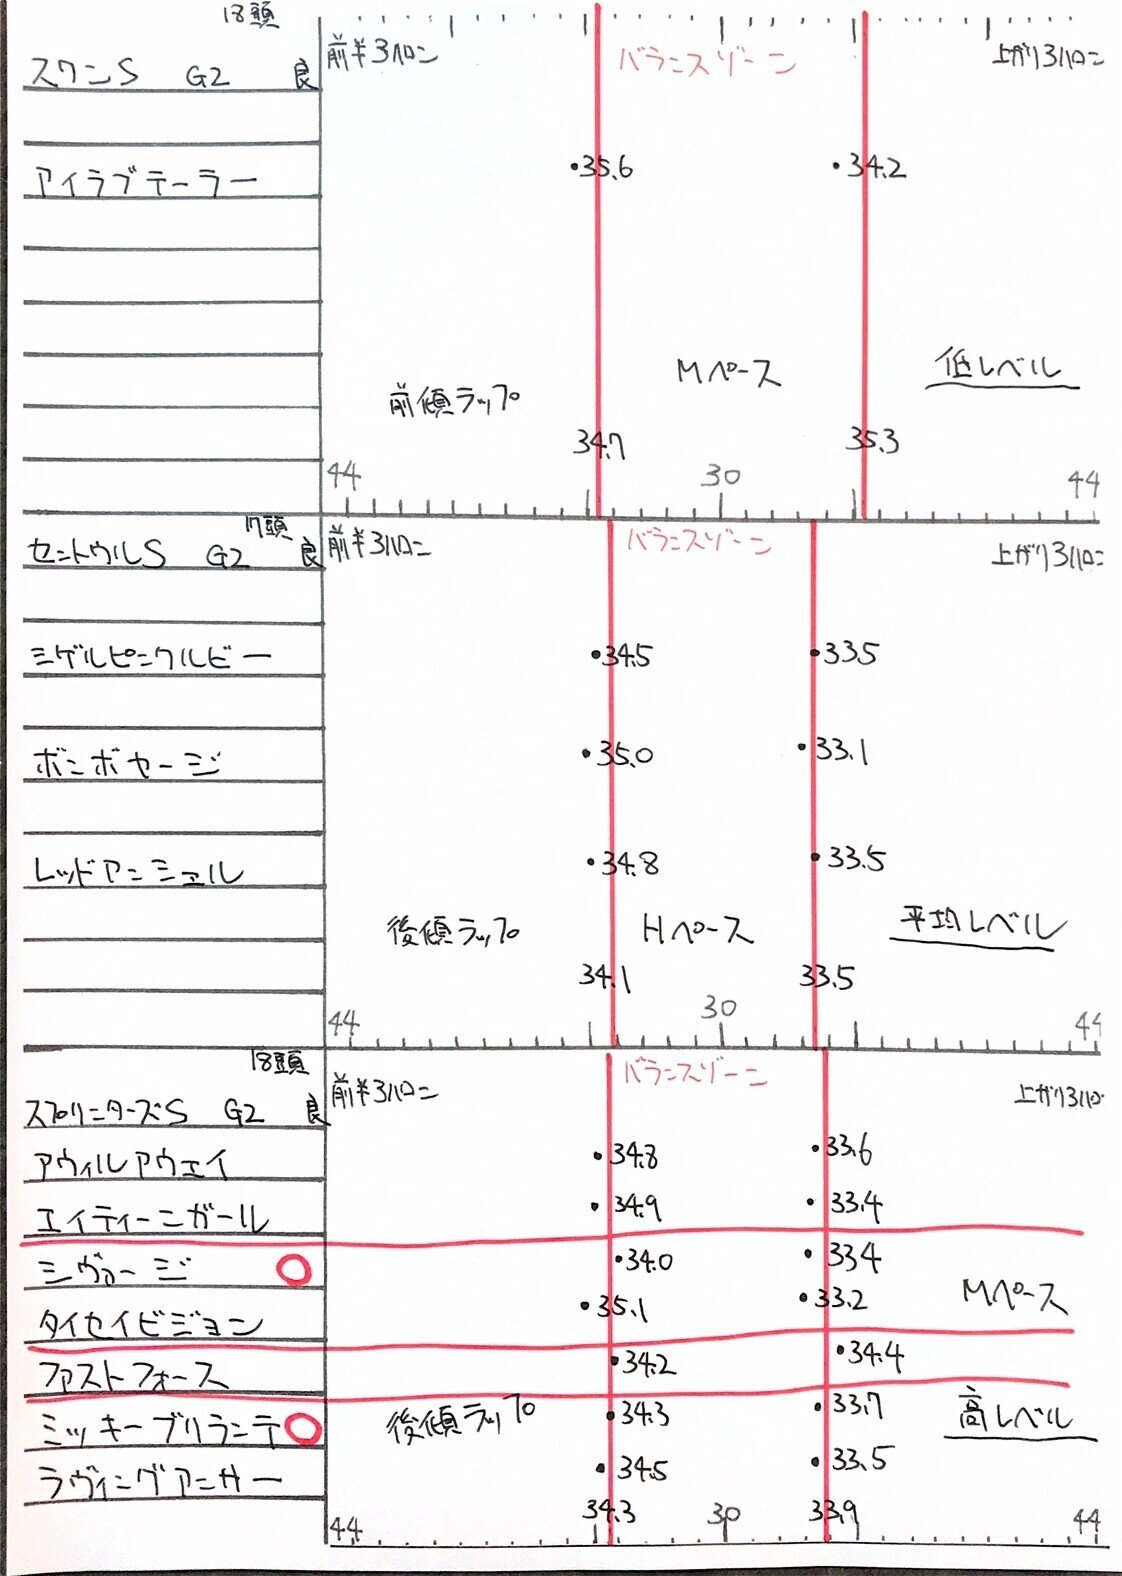 18頭
スワンS G2 良 前半3ハロン バランスゾーン 上がり3ハロン
アイラブテーラー ・35.6 ・34.2
Mペース 低レベル
前傾ラップ
34.7 35.3
44 30 44
17頭
セントウルS G2 良 前半3ハロン バランスゾーン 上がり3ハロン
ミゲルピンクルビー ・34.5 ・33.5
ボンボヤージ ・35.0 ・33.1
レッドアンシェル ・34.8 ・33.5
後傾ラップ Hペース 平均レベル
34.1 33.5
44 30 44
18頭
バランスゾーン
スプリンターズS G2 良 前半3ハロン 上がり3ハロ
アウィルアウェイ ・34.8 ・33.6
エイティーンガール ・34.9 ・33.4
シヴァージ ○ ・34.0 ・33.4
Mペース
タイセイビジョン ・35.1 ・33.2
ファストフォース ・34.2 ・34.4
ミッキーブリランテ ○ 後傾ラップ ・34.3 ・33.7 高レベル
ラヴィングアンサー ・34.5 ・33.5
34.3 33.9
44 30 44